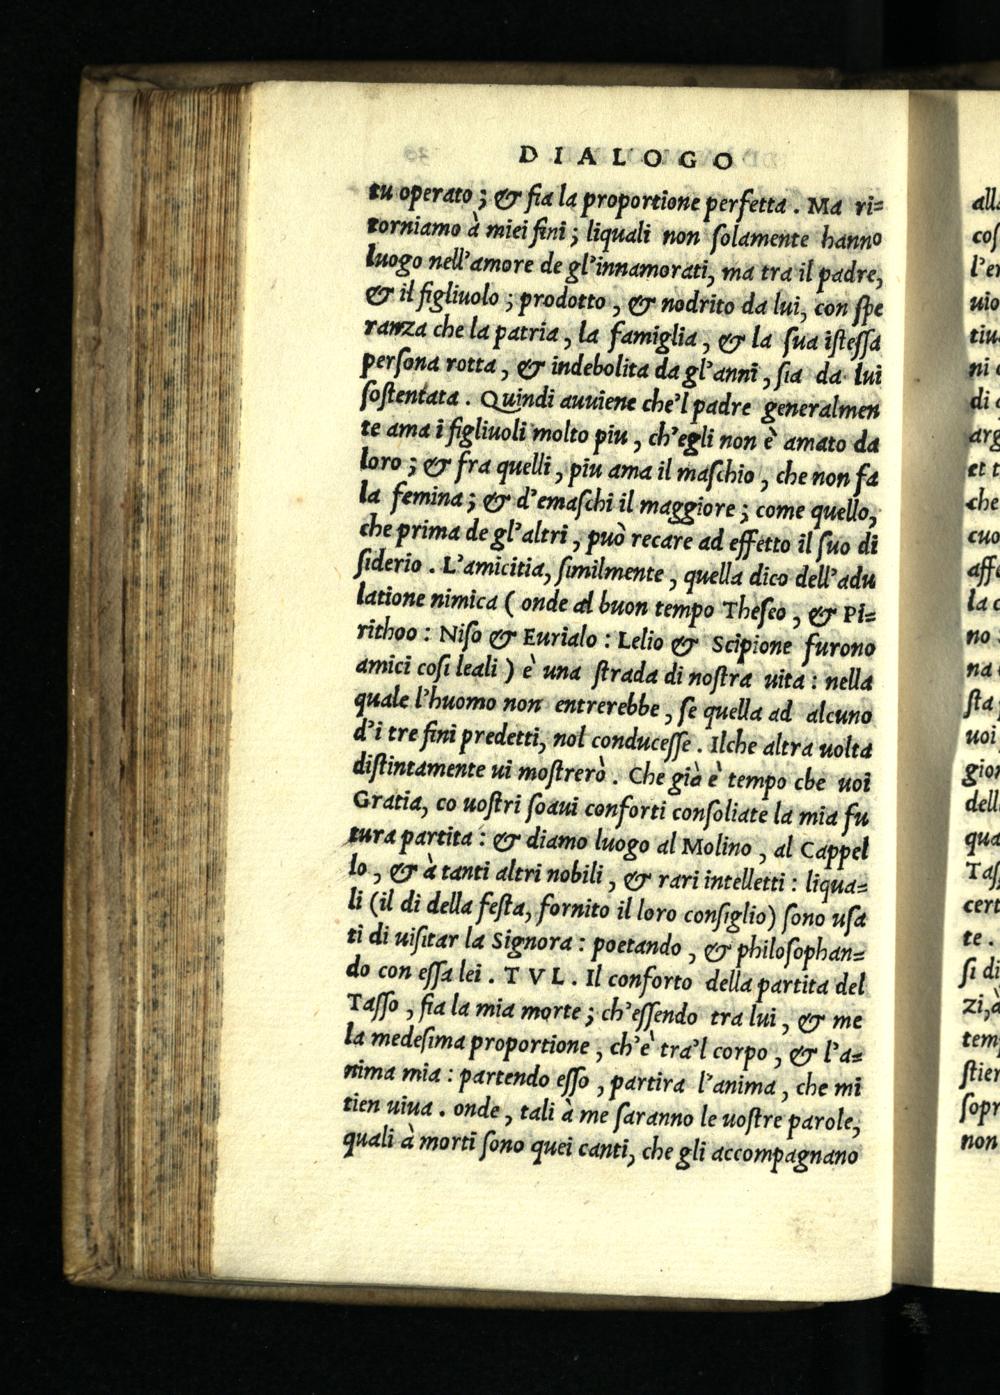 DIALOGO
tu operato ; & ſia la proportione perfetta . Ma ri=
torniamo à miei fini ; liquali non ſolamente hanno
luogo nell'amore de gl'innamorati, ma tra il padre,
& il figliuolo ; prodotto , & nodrito da lui, con ſpe
ranza che la patria , la famiglia , & la ſua iſteſſa
perſona rotta , & indebolita da gl'anni , ſia da lui
ſoſtentata . Quindi auuiene che'l padre generalmen
te ama i figliuoli molto piu , ch'egli non è amato da
loro ; & fra quelli , piu ama il maſchio , che non fa
la femina ; & d'emaſchi il maggiore ; come quello,
che prima de gl'altri , può recare ad effetto il ſuo di
ſiderio . L'amicitia, ſimilmente , quella dico dell'adu
latione nimica ( onde al buon tempo Theſeo , & Pi=
rithoo : Niſo & Eurialo : Lelio & Scipione furono
amici coſi leali ) è una ſtrada di noſtra uita : nella
quale l'huomo non entrerebbe , ſe quella ad alcuno
d'i tre fini predetti, nol conduceſſe . Ilche altra uolta
diſtintamente ui moſtrerò . Che già è tempo che uoi
Gratia, co uoſtri ſoaui conforti conſoliate la mia fu
tura partita : & diamo luogo al Molino , al Cappel
lo , & à tanti altri nobili , & rari intelletti : liqua=
li (il di della feſta, fornito il loro conſiglio) ſono uſa
ti di uiſitar la Signora : poetando , & philoſophan=
do con eſſa lei . TVL . Il conforto della partita del
Taſſo , fia la mia morte ; ch'eſſendo tra lui , & me
la medeſima proportione , ch'è tra'l corpo , & l'a=
nima mia : partendo eſſo , partira l'anima , che mi
tien uiua . onde , tali à me ſaranno le uoſtre parole,
quali à morti ſono quei canti, che gli accompagnano